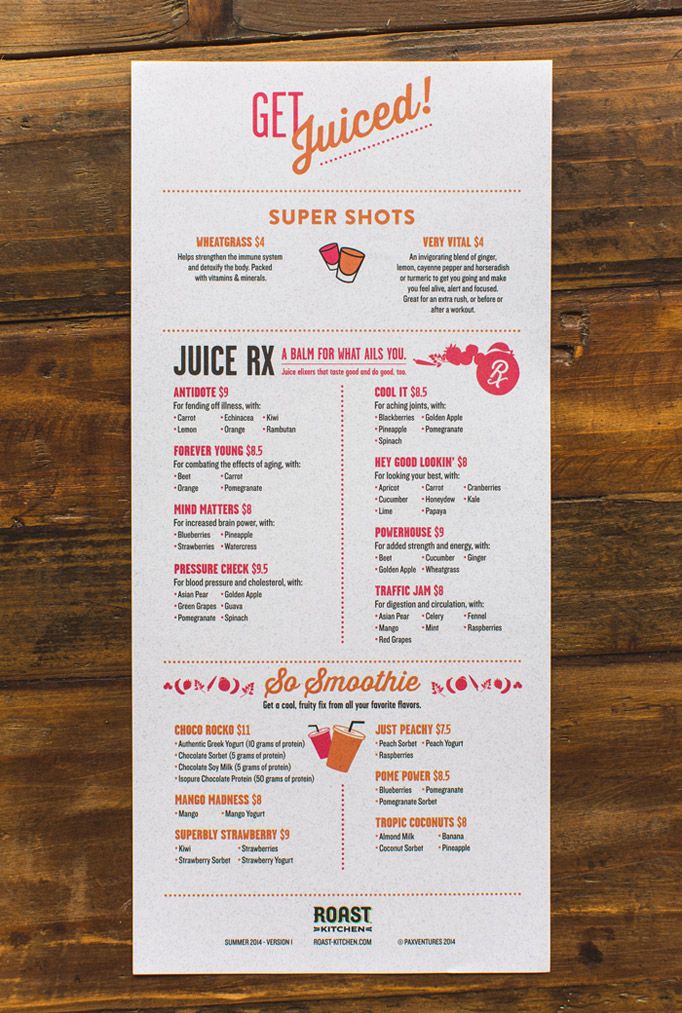 GET Juiced!
SUPER SHOTS
WHEATGRASS $4
Helps strengthen the immune system
and detoxify the body. Packed
with vitamins & minerals.
VERY VITAL $4
An invigorating blend of ginger,
lemon, cayenne pepper and horseradish
or turmeric to get you going and make
you feel alive, alert and focused.
Great for an extra rush, or before or
after a workout.
JUICE RX
A BALM FOR WHAT AILS YOU.
Juice elixers that taste good and do good, too.
Rx
ANTIDOTE $9
For fending off illness, with:
• Carrot • Echinacea • Kiwi
• Lemon • Orange • Rambutan
FOREVER YOUNG $8.5
For combating the effects of aging, with:
• Beet • Carrot
• Orange • Pomegranate
MIND MATTERS $8
For increased brain power, with:
• Blueberries • Pineapple
• Strawberries • Watercress
PRESSURE CHECK $9.5
For blood pressure and cholesterol, with:
• Asian Pear • Golden Apple
• Green Grapes • Guava
• Pomegranate • Spinach
COOL IT $8.5
For aching joints, with:
• Blackberries • Golden Apple
• Pineapple • Pomegranate
• Spinach
HEY GOOD LOOKIN' $8
For looking your best, with:
• Apricot • Carrot • Cranberries
• Cucumber • Honeydew • Kale
• Lime • Papaya
POWERHOUSE $9
For added strength and energy, with:
• Beet • Cucumber • Ginger
• Golden Apple • Wheatgrass
TRAFFIC JAM $8
For digestion and circulation, with:
• Asian Pear • Celery • Fennel
• Mango • Mint • Raspberries
• Red Grapes
So Smoothie
Get a cool, fruity fix from all your favorite flavors.
CHOCO ROCKO $11
• Authentic Greek Yogurt (10 grams of protein)
• Chocolate Sorbet (5 grams of protein)
• Chocolate Soy Milk (5 grams of protein)
• Isopure Chocolate Protein (50 grams of protein)
MANGO MADNESS $8
• Mango • Mango Yogurt
SUPERBLY STRAWBERRY $9
• Kiwi • Strawberries
• Strawberry Sorbet • Strawberry Yogurt
JUST PEACHY $7.5
• Peach Sorbet • Peach Yogurt
• Raspberries
POME POWER $8.5
• Blueberries • Pomegranate
• Pomegranate Sorbet
TROPIC COCONUTS $8
• Almond Milk • Banana
• Coconut Sorbet • Pineapple
ROAST
KITCHEN
SUMMER 2014 - VERSION 1 ROAST-KITCHEN.COM © PAXVENTURES 2014